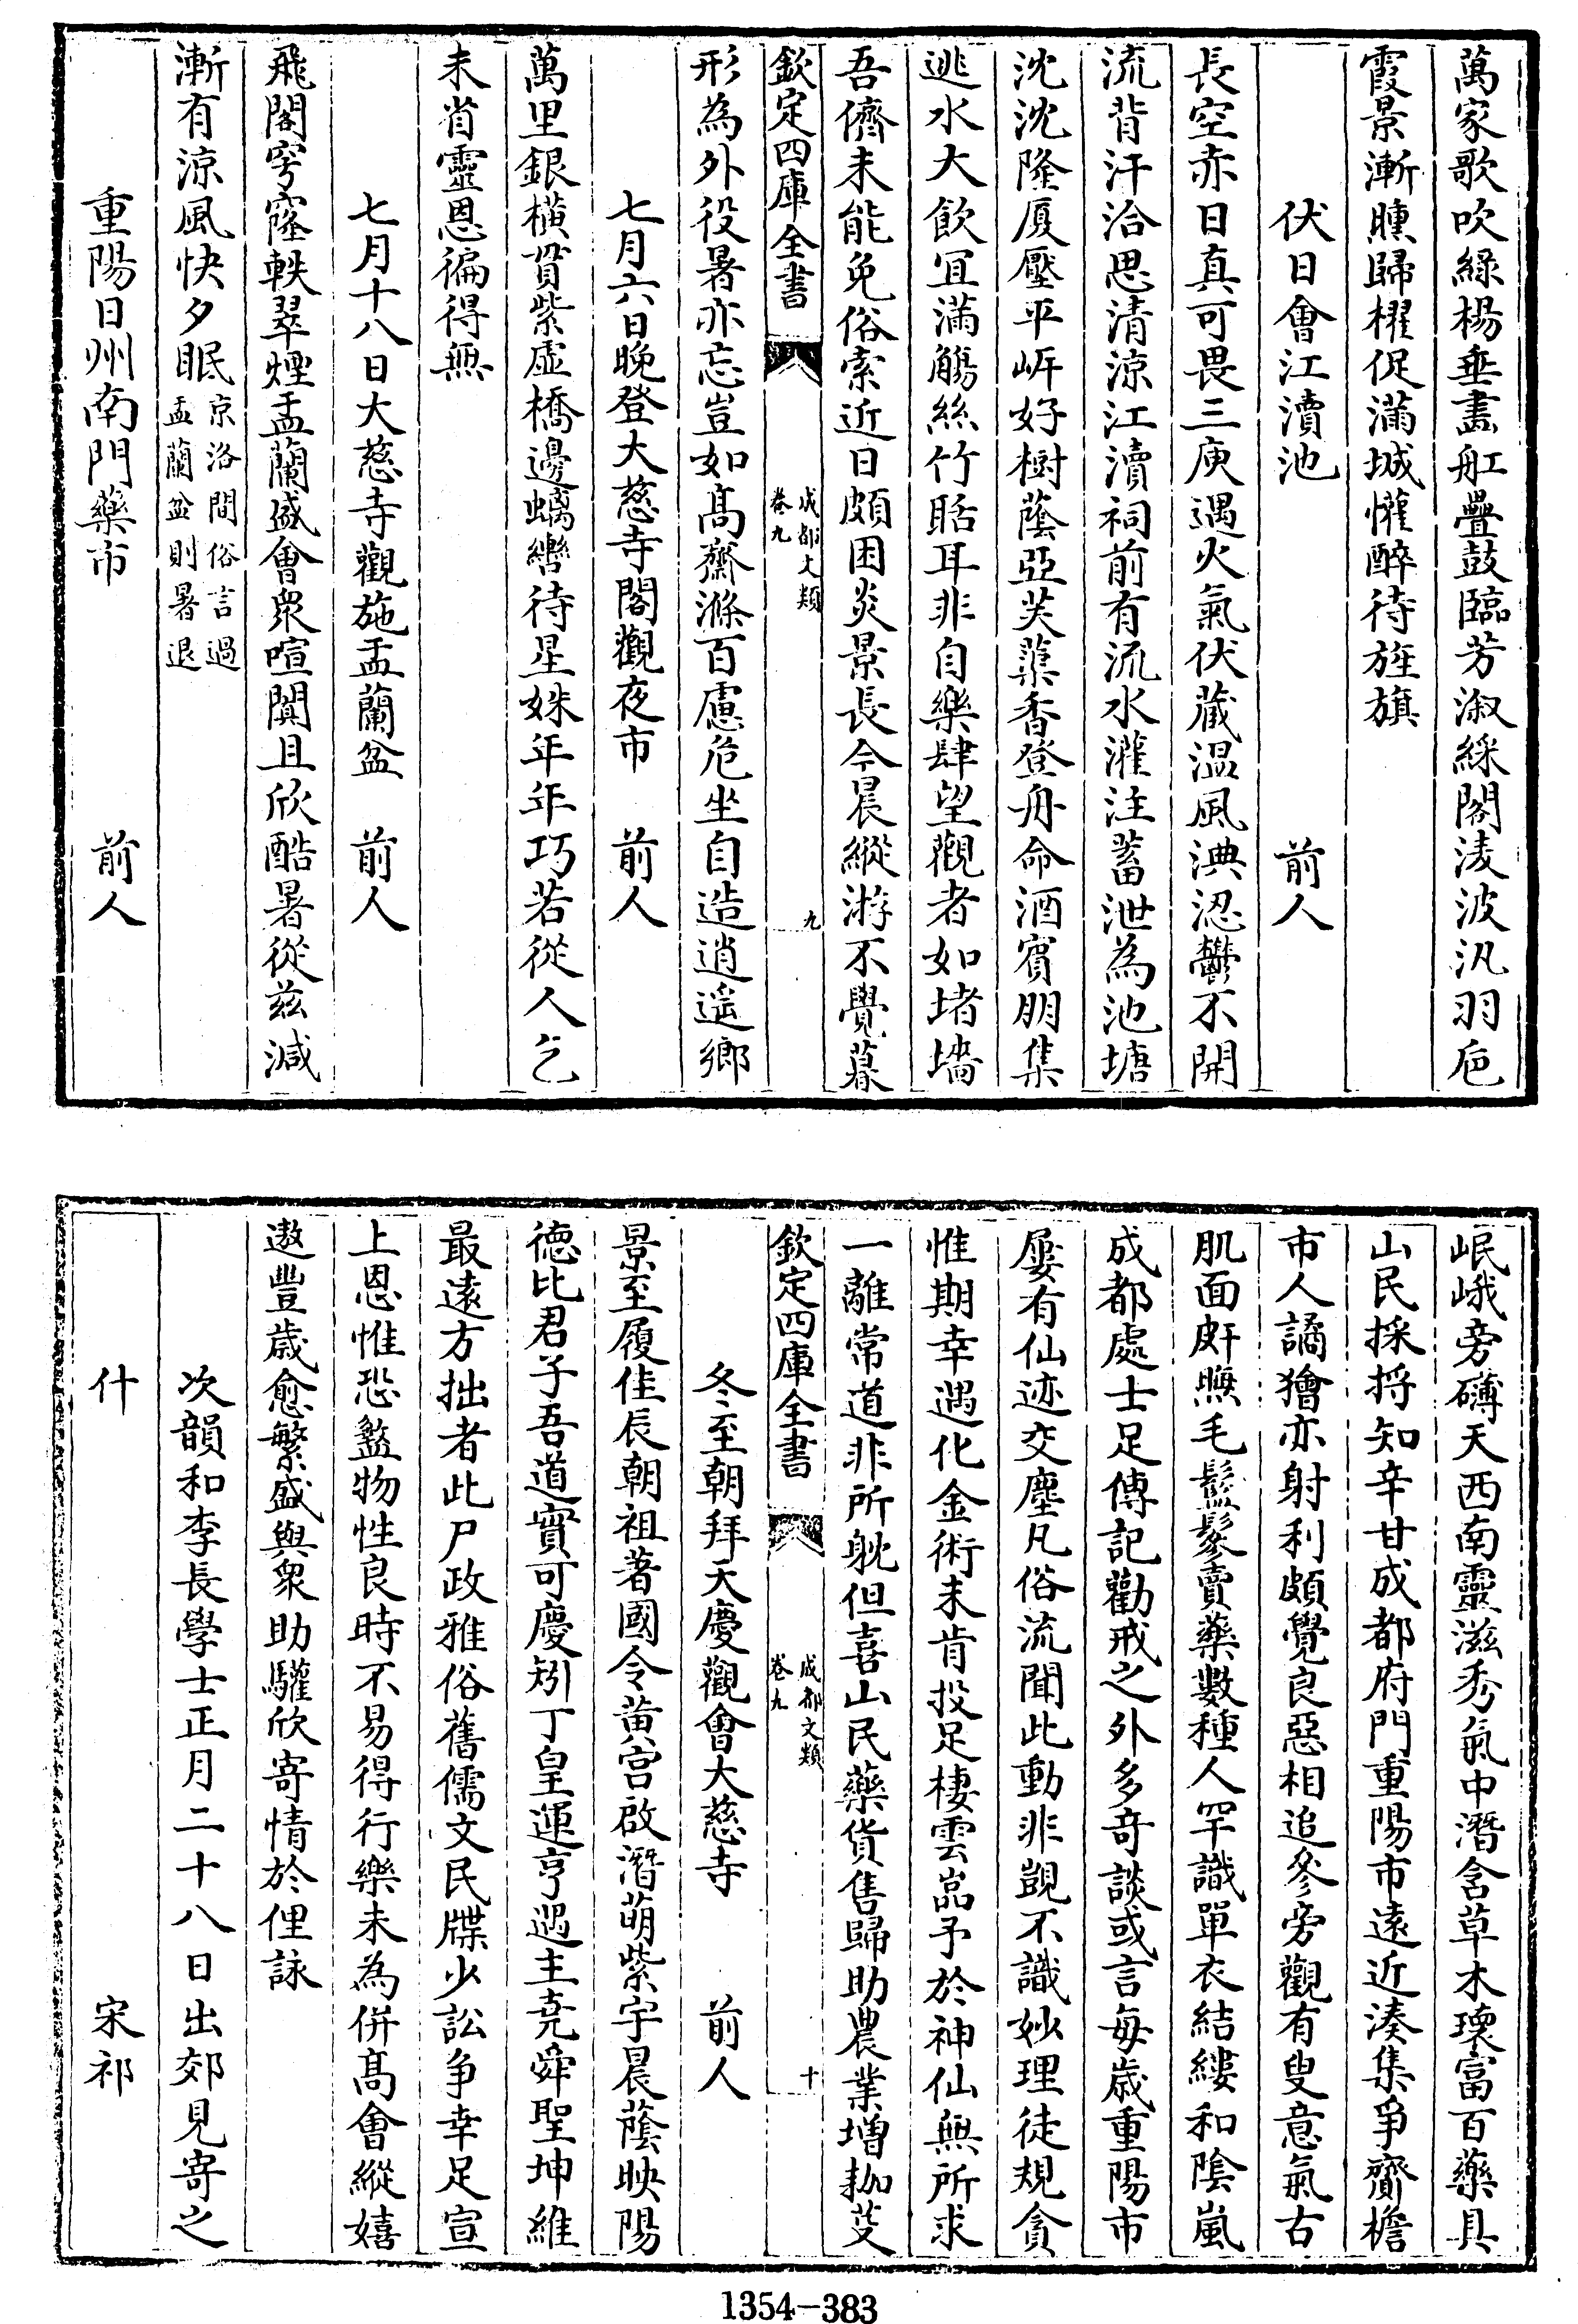 萬家歌吹綠楊垂畫舡疊鼓臨芳溆綵閣淩波汎羽巵
霞景漸曛歸櫂促滿城懽醉待旌旗
伏日會江瀆池　前人
長空赤日真可畏三庚遇火氣伏藏温風淟涊鬱不開
流背汗洽思清涼江瀆祠前有流水灌注蓄泄為池塘
沈沈隆厦壓平㟁好樹蔭亞芙蕖香登舟命酒賓朋集
逃水大飲冝滿觴絲竹聒耳非自樂肆望觀者如堵墻
吾儕未能免俗索近日頗困炎景長今晨縱游不覺暮
欽定四庫全書　成都文類　卷九　九
形為外役暑亦忘豈如髙齋滌百慮危坐自造逍遥鄉
七月六日晚登大慈寺閣觀夜市　前人
萬里銀横貫紫虛橋邊螭轡待星姝年年巧若從人乞
未省靈恩徧得無
七月十八日大慈寺觀施盂蘭盆　前人
飛閣穹窿軼翠煙盂蘭盛會衆喧闐且欣酷暑從兹減
漸有涼風快夕眠京洛間俗言過盂蘭盆則暑退
重陽日州南門藥市　前人
岷峨旁礴天西南靈滋秀氣中潛含草木瓌富百藥具
山民採捋知辛甘成都府門重陽市遠近湊集爭齎檐
市人譎獪亦射利頗覺良惡相追參旁觀有叟意氣古
肌面皯䵳毛鬖鬖賣藥數種人罕識單衣結縷和隂嵐
成都處士足傳記勸戒之外多竒談或言每嵗重陽市
屢有仙迹交塵凡俗流聞此動非覬不識妙理徒規貪
惟期幸遇化金術未肯投足棲雲嵓予於神仙無所求
一離常道非所躭但喜山民藥貨售歸助農業増耞芟
欽定四庫全書　成都文類　卷九　十
冬至朝拜天慶觀會大慈寺　前人
景至履佳辰朝祖著國令黄宫啟潛萌紫宇晨蔭映陽
德比君子吾道實可慶矧丁皇運亨遇主堯舜聖坤維
最遠方拙者此尸政雅俗舊儒文民牒少訟爭幸足宣
上恩惟恐盭物性良時不易得行樂未為併髙會縱嬉
遨豐嵗愈繁盛與衆助驩欣寄情於俚詠
次韻和李長學士正月二十八日出郊見寄之
什　宋祁
1354—383